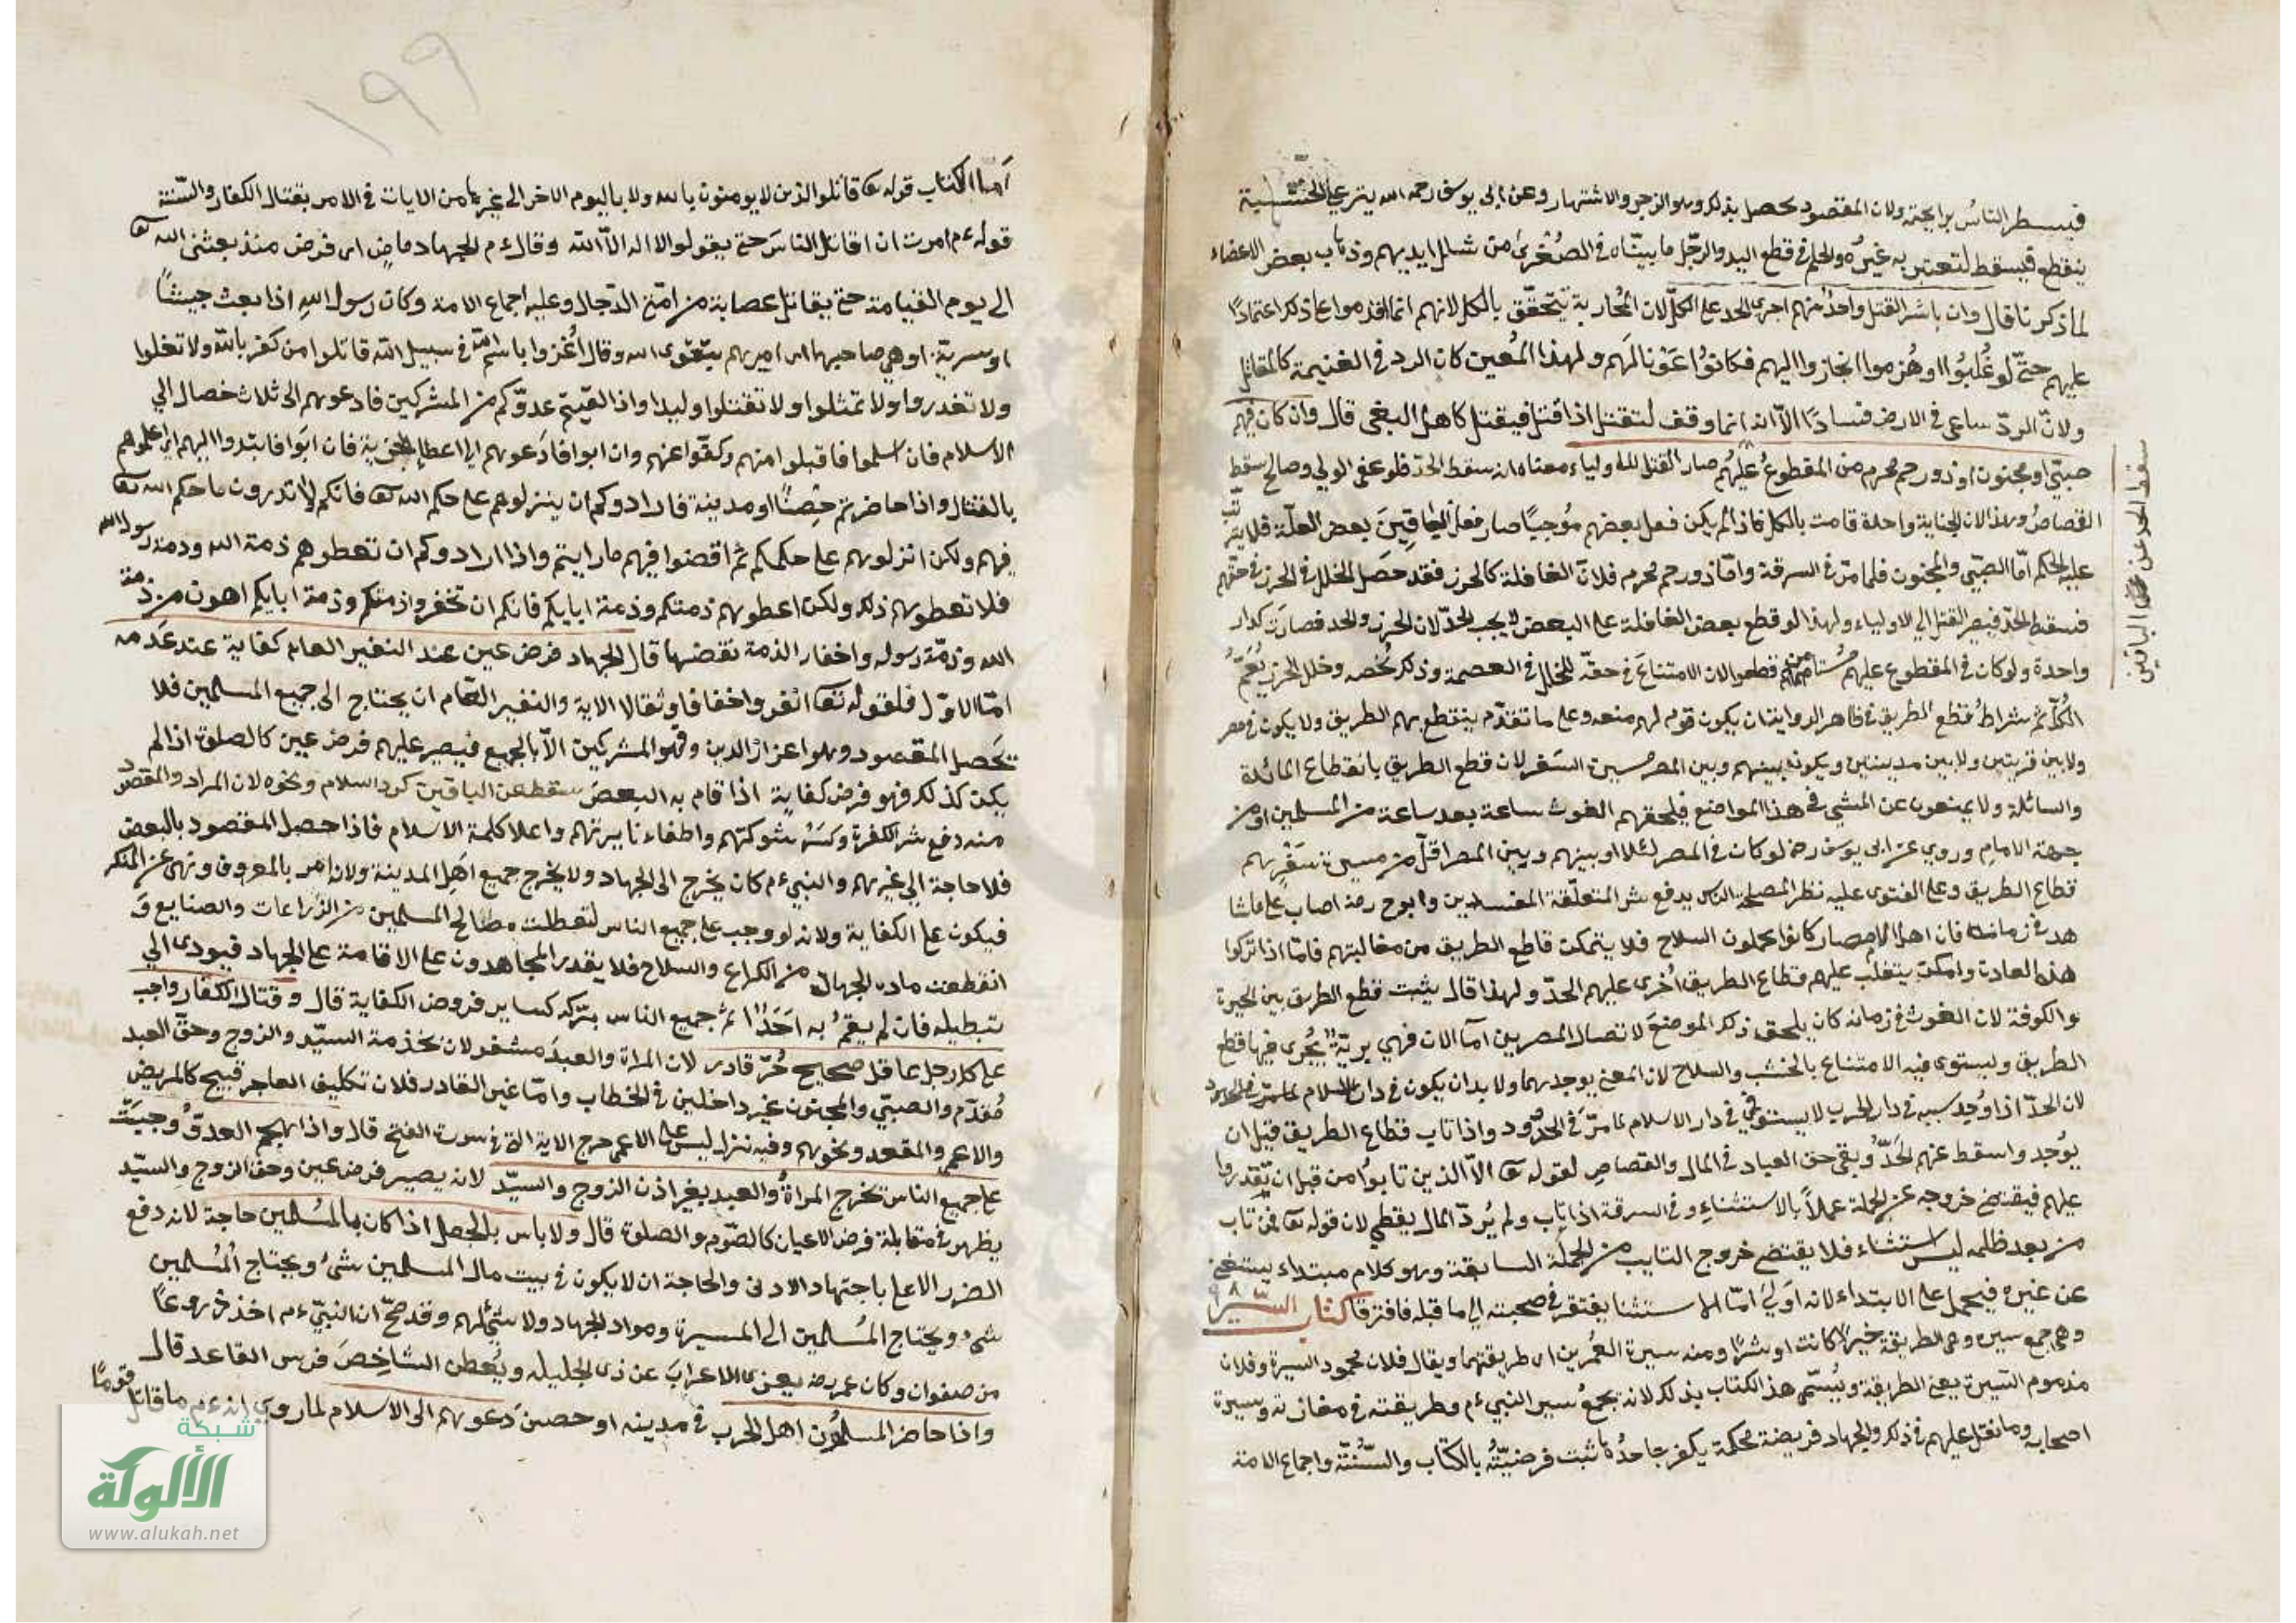 فيسطر الناس برايحته ولان المقصود يحصل بذلك وهو الزجر والاشتهار وعن ابى يوسف رحمه الله يترك على الخشبة
ينقطع فيسقط لتعتبر به غيره والحكم فى قطع اليد والرجل ما بيناه فى الصغرى من شلل ايديهم وذهاب بعض الاعضاء
لما ذكرنا قال وان باشر القتل واحد منهم اجرى الحد على الكل لان المحاربة تتحقق بالكل لانهم انما اقدموا على ذلك اعتمادًا
عليهم حتى لو غلبوا او هزموا انحازوا اليهم فكانوا عونا لهم ولهذا المعين كان الردء فى الغنيمة كالمقاتل
ولان الردء ساعى فى الارض فسادًا الا انه انما وقف لتقتل اذا قتل فيقتل كاهل البغى قال وان كان فيهم
صبى او مجنون او ذو رحم محرم من المقطوع عليهم صار القتل للاولياء معناه انه سقط الحد فلو عفى الولى وصالح سقط
القصاص وهذا لان الجناية واحدة قامت بالكل فاذا لم يكن فعل بعضهم موجبًا صار فعل الباقين بعض العلة فلا يترتب
عليه الحكم اما الصبى والمجنون فلما مر فى السرقة واما ذو رحم محرم فلان القافلة كالحرز فقد حصل الخلل فى الحرز فى حقهم
فسقط الحد فيصر القتل الى الاولياء ولهذا لو قطع بعض القافلة على البعض لا يجب الحد لان الحرز واحد فصارت كدار
واحدة ولو كان فى المقطوع عليهم مستامن قطعوا لان الامتناع فى حقه للخلل فى العصمة وذلك تخصه وخلل الحرز يعم
الكل ثم شرائط قطع الطريق فى ظاهر الرواية ان يكون قوم لهم منعه وعلى ما تقدم ينقطع بهم الطريق ولا يكون فى مصر
ولا بين قريتين ولا بين مدينتين ويكون بينهم وبين المصر مسيرة السفر لان قطع الطريق بانقطاع المائلة
والسائلة ولا يمتنعون عن المشى فى هذا المواضع فيلحقهم الغوث ساعة بعد ساعة من المسلمين او من
جهة الامام وروى عن ابى يوسف رحه لو كان فى المصر ليلا او بينهم وبين المصر اقل من مسيرة سفر هم
قطاع الطريق وعلى الفتوى عليه نظر المصلحة الناس يدفع شر المتغلقة المفسدين وابو ح رحه اصاب على ما شا
هد فى زمانه فان اهل الامصار كانوا يحملون السلاح فلا يتمكن قاطع الطريق من مغالبتهم فاما اذا تركوا
هذه العادة وامكن يتغلب عليهم قطاع الطريق اجرى عليهم الحد ولهذا قال يثبت قطع الطريق بين الحيرة
والكوفة لان الغوث فى زمانه كان يلحق ذلك الموضع لاتصال المصرين اما الان فهى برية يجرى فيها قطع
الطريق ويستوى فيه الامتناع بالخشب والسلاح لان المعنى يوجد بهما ولا بد ان يكون فى دار الاسلام لما مر فى الحدود
لان الحد اذا وجد سببه فى دار الحرب لا يستوفى فى دار الاسلام لما مر فى الحدود واذا تاب قطاع الطريق قبل ان
يوجد واسقط عنهم الحد وبقى حق العباد فى المال والقصاص لقوله تعا الا الذين تابوا من قبل ان تقدروا
عليهم فيقتضى خروجه عن الجملة عملا بالاستثناء وفى السرقة اذا تاب ولم يرد المال يقطع لان قوله تعا فمن تاب
من بعد ظلمه ليس استثناء فلا يقتضى خروج التايب من الجملة السابقة وهو كلام مبتداء يستغنى
عن غيره فيحمل على الابتداء لانه اولى اما الاستثنا يفتقر فى صحبته الى ما قبله فافترقا كتاب السير
وهى جمع سيره وهى الطريقة خيرًا كانت او شرًا ومنه سيرة العمرين اى طريقتهما ويقال فلان محمود السيرة وفلان
مذموم السيرة يعنى الطريقة ويسمى هذ الكتاب بذلك لانه يجمع سير النبى ءم وطريقته فى مغازيه وسيرة
اصحابه وما نقل عليهم فى ذلك والجهاد فريضة محكمة يكفر جاحدها ثبت فرضيته بالكتاب والسنة واجماع الامة
سقط الحد عن الباقين
١٩٩
اما الكتاب قوله تعا قاتلوا الذين لا يومنون بالله ولا باليوم الاخر الى غيرها من الايات فى الامر بقتال الكفار والسنة
قوله ءم امرت ان اقاتل الناس حتى يقولوا لا اله الا الله وقال ءم الجهاد ماض اى فرض منذ بعثنى الله تعا
الى يوم القيامة حتى يقاتل عصابة من امتى الدجال وعليه اجماع الامة وكان رسول الله اذا بعث جيشًا
او سرية اوصى صاحبها اى اميرهم بتقوى الله وقال اغزوا باسم الله فى سبيل الله قاتلوا من كفر بالله ولا تغلوا
ولا تغدروا ولا تمثلوا ولا تقتلوا وليدا واذا لقيتم عدوكم من المشركين فادعوهم الى ثلاث خصال الى
الاسلام فان اسلموا فاقبلوا منهم وكفوا عنهم وان ابوا فادعوهم الى اعطاء الجزية فان ابوا فابتدوا اليهم اى اعلموهم
بالقتال واذا حاضرتم حصنًا او مدينة فارادوكم ان ينزلوهم على حكم الله تعا فانكم لا تدرون ما حكم الله تعا
فيهم ولكن انزلوهم على حكمكم ثم اقضوا فيهم ما رايتم واذا ارادوكم ان تعطوهم ذمة الله وذمة رسول الله
فلا تعطوهم ذلك ولكن اعطوهم ذمتكم وذمة ابايكم فانكم ان تخفروا ذمتكم وذمة ابايكم اهون من ذمة
الله وذمة رسوله واخفار الذمة نقضها قال الجهاد فرض عين عند النفير العام كفاية عند عدمه
اما الاول فلقوله تعا انفروا خفافا وثقالا الاية والنفير العام ان يحتاج الى جميع المسلمين فلا
تحصل المقصود وهو اعزاز الدين وقهر المشركين الا بالجميع فيصير عليهم فرض عين كالصلوة اذا لم
يكن كذلك فهو فرض كفاية اذا قام به البعض سقط عن الباقين كرد السلام ونحوه لان المراد والمقصود
منه دفع شر الكفرة وكسر شوكتهم واطفاء نايرتهم واعلا كلمة الاسلام فاذا حصل المقصود بالبعض
فلا حاجة الى غيرهم والنبى ءم كان يخرج الى الجهاد ولا يخرج جميع اهل المدينة ولانه امر بالمعروف ونهى عن المنكر
فيكون على الكفاية ولانه لو وجب على جميع الناس لتعطلت مصالح المسلمين من الزراعات والصنايع و
انقطعت ماده الجهاد من الكراع والسلاح فلا يقدر المجاهدون على الاقامة على الجهاد فيودى الى
تبطيله فان لم يقم به احد اثم جميع الناس بتركه كساير فروض الكفاية قال وقتال الكفار واجب
على كل رجل عاقل صحيح حر قادر لان المراة والعبد مشغولان بخدمة السيد والزوج وحق العبد
مقدم والصبى والمجنون غير داخلين فى الخطاب واما غير القادر فلان تكليف العاجز قبيح كالمريض
والاعمى والمقعد ونحوهم وفيه نزل ليس على الاعمى حرج الاية التى فى سورة الفتح قال واذا هجم العدو وجبت
على جميع الناس تخرج المراة والعبد بغير اذن الزوج والسيد لانه يصير فرض عين وحق الزوج والسيد
يظهر فى مقابلة فرض الاعيان كالصوم والصلوة قال ولا باس بالجعل اذا كان بالمسلمين حاجة لانه دفع
الضرر الاعلى باجتهاد الادنى والحاجة ان لا يكون فى بيت مال المسلمين شىء ويحتاج المسلمين
شىء ويحتاج المسلمين الى المسيرة ومواد الجهاد ولا شىء لهم وقد صح ان النبى ءم اخذ دروعًا
من صفوان وكان عمر رضه يغزى الاعزاب عن ذى الحليله ويعطى الشاخص فرس القاعد قال
واذا حاضر المسلمون اهل الحرب فى مدينه او حصن دعوهم الى الاسلام لما روى انه ءم ما قاتل قومًا
شبكة
الألوكة
www.alukah.net